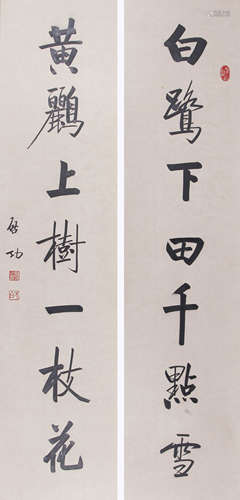 白鷺下田千點雪
黃鸝上樹一枝花
啟功